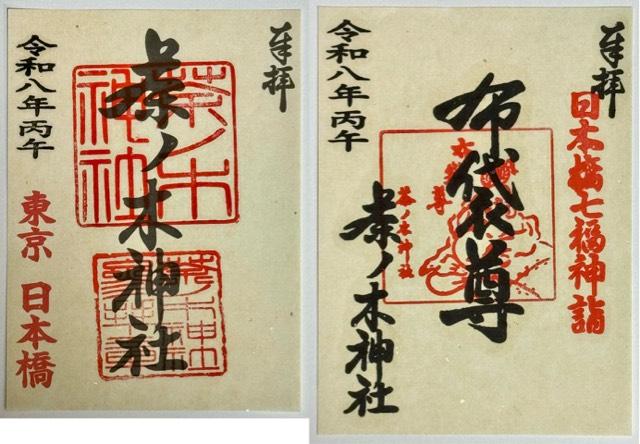 奉拝
茶ノ木神社
茶ノ木
神社
令和八年丙午
東京 日本橋
奉拝
日本橋七福神詣
布袋尊
布袋尊
茶ノ木神社
茶ノ木神社
令和八年丙午